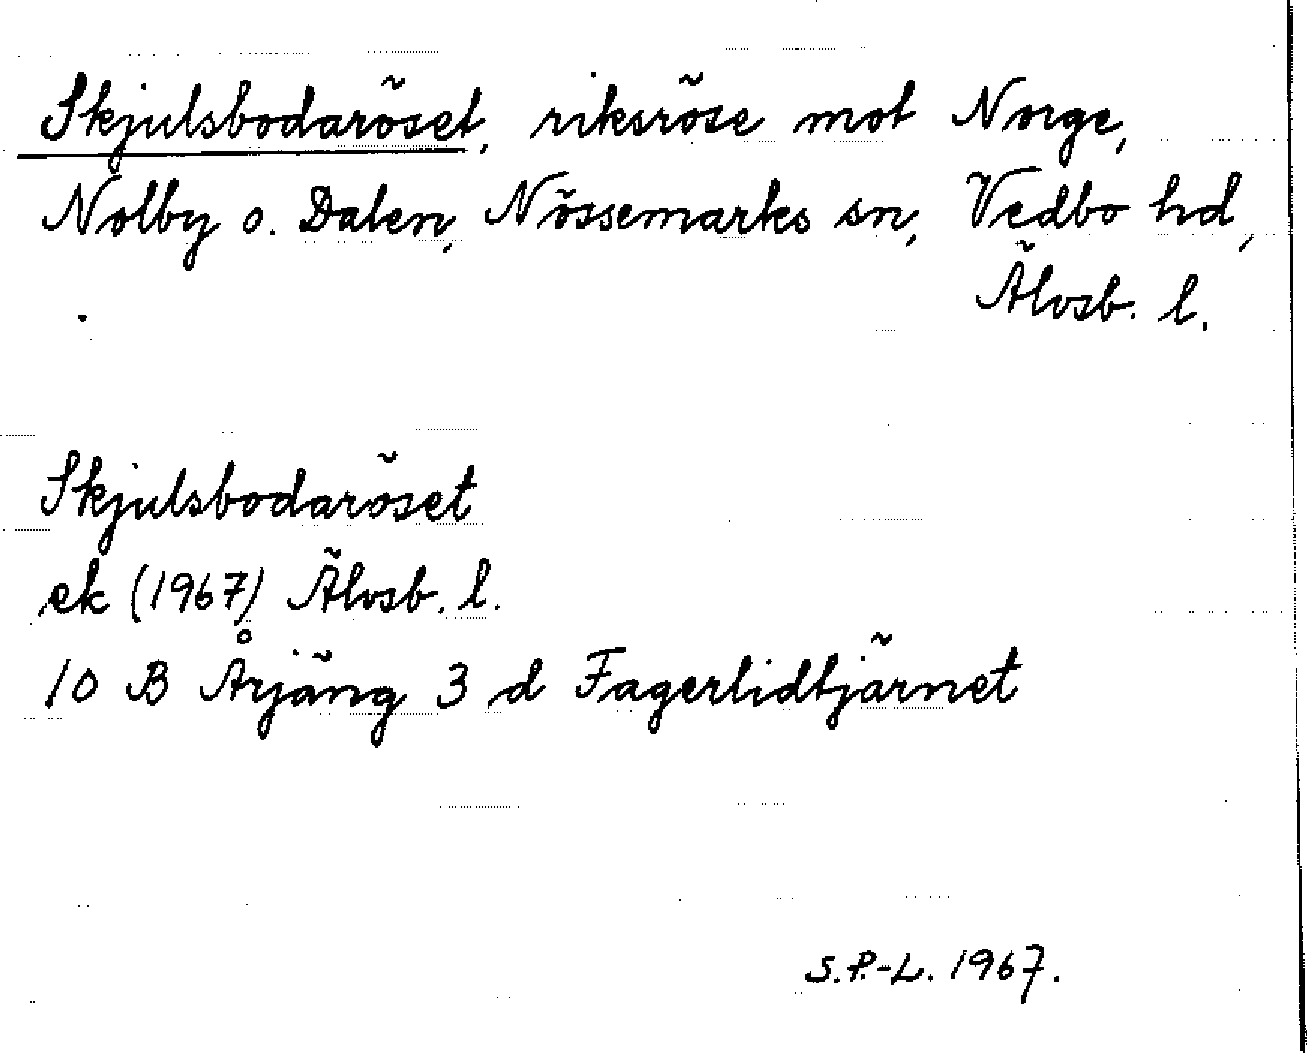 Skjulsbodaröset, riksröse mot Norge,
Nolby o. Dalen, Nössemarks sn, Vedbo hd,
Älvsb. l.
Skjulsbodaröset
ek (1967) Älvsb. l.
10 B Årjäng 3 d Fagerlidtjärnet
S.P.-L. 1967.